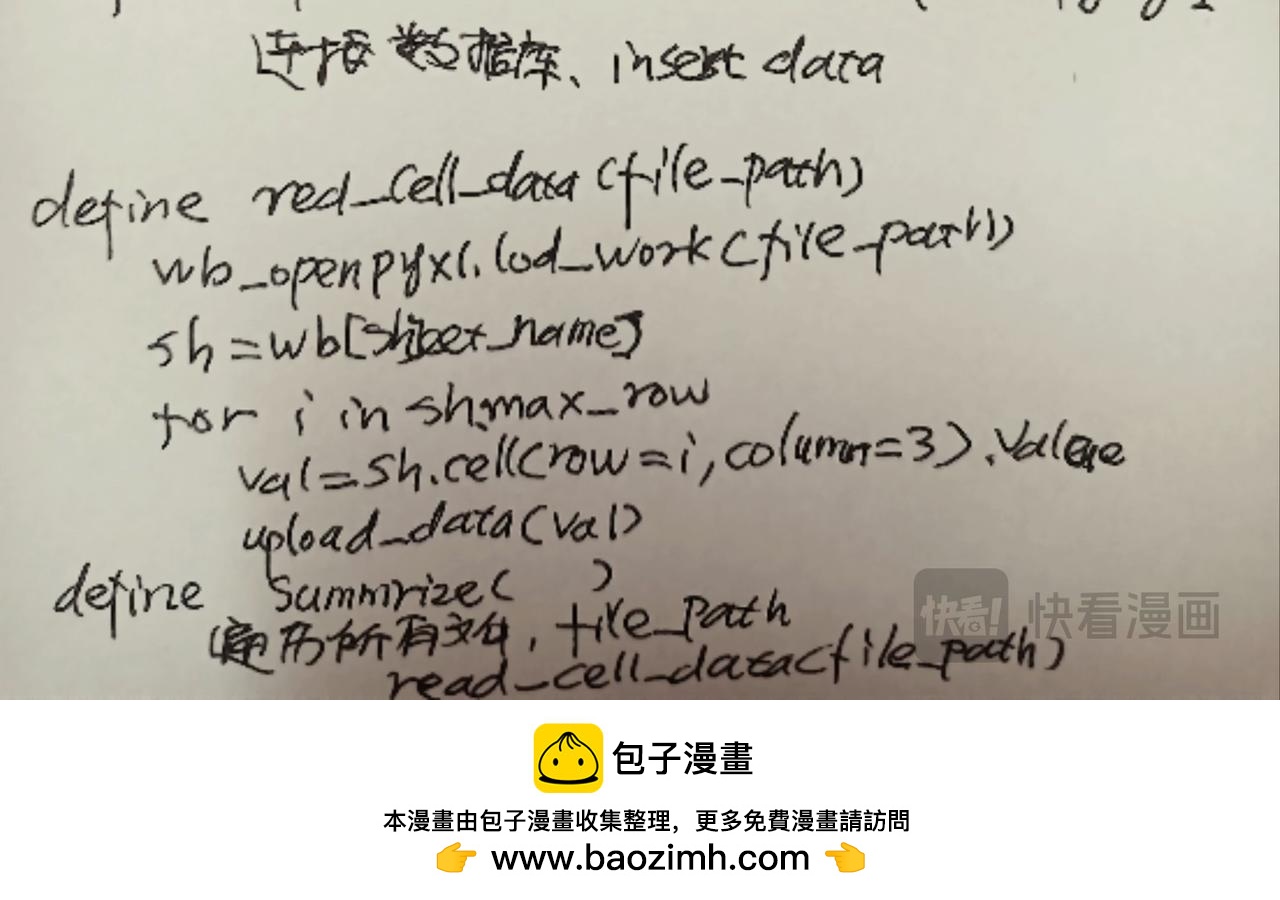 连接数据库、insert data
define red_cell_data(file_path)
wb_openpyxl.lod_work(file_path)
sh=wb[sheet_name]
for i in sh.max_row
val=sh.cell(row=i,column=3).value
upload_data(val)
define Summrize( )
遍历所有文件,file_path
read_cell_data(file_path)
快看! 快看漫画
包子漫畫
本漫畫由包子漫畫收集整理,更多免費漫畫請訪問
👉 www.baozimh.com 👈